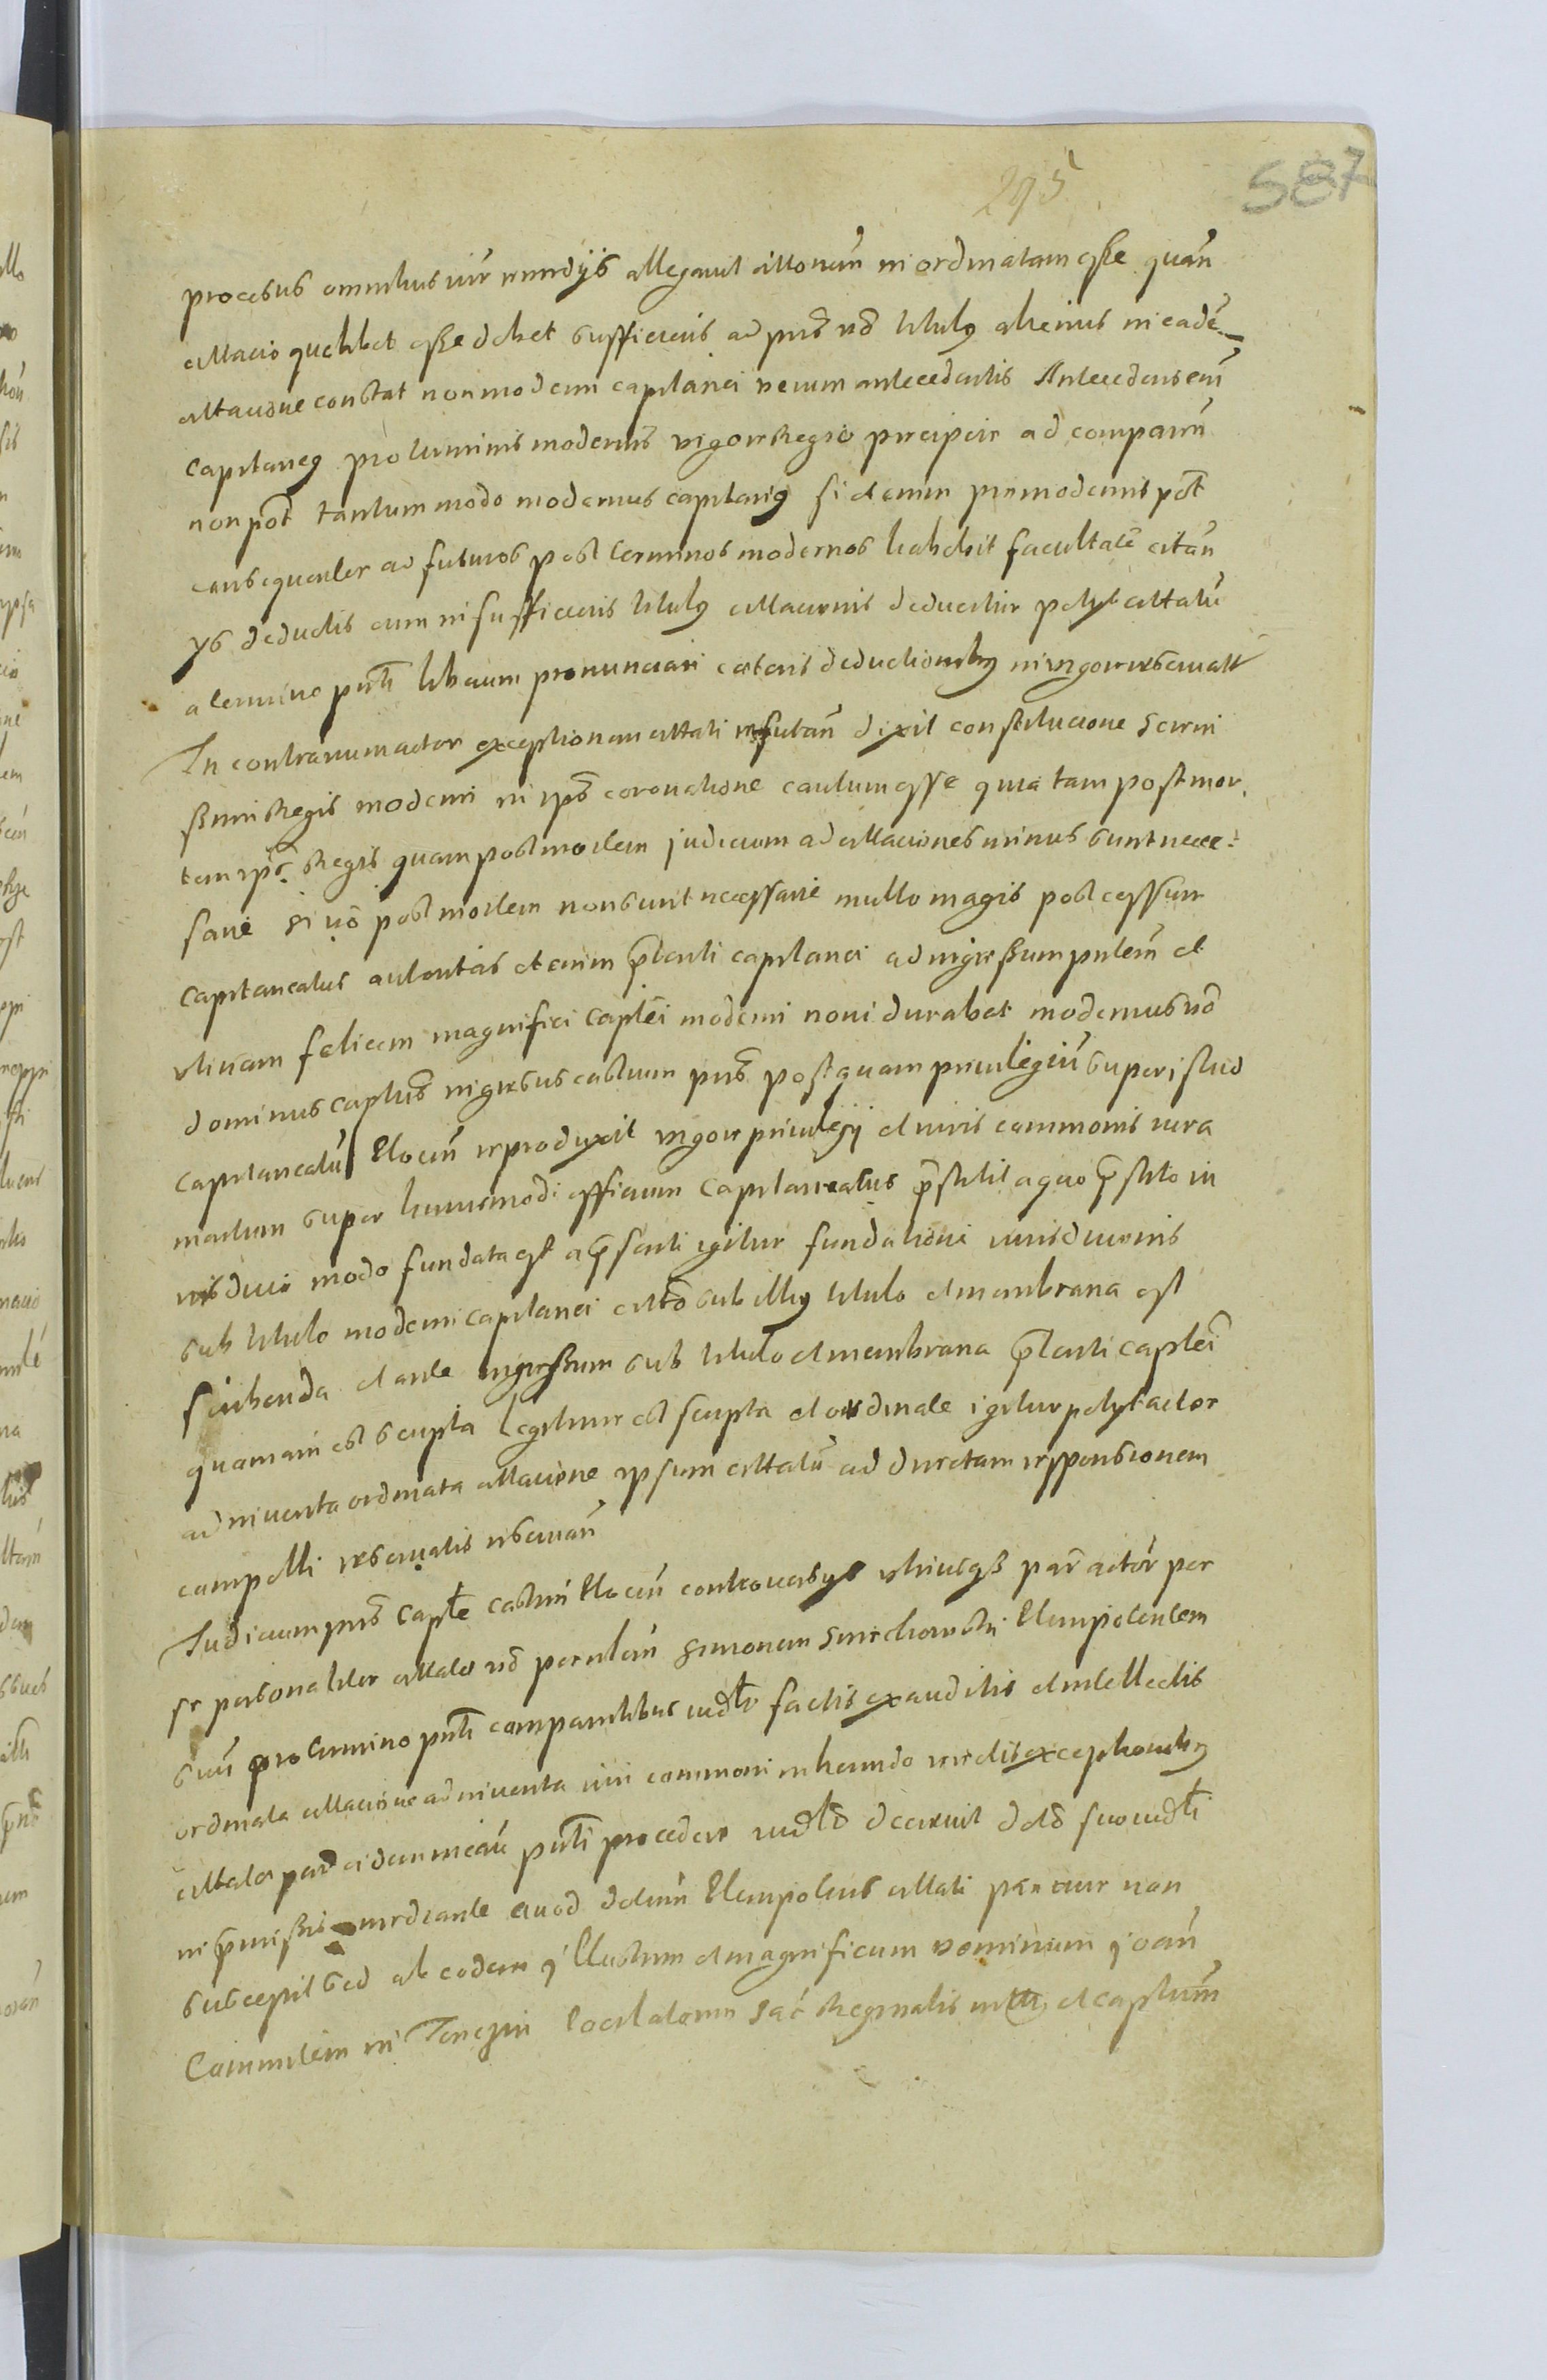 295
587
processus omnibus iur remedys allegavit citlonem in ordinatam esse quam
citlacio quelibet esse debet sufficiens ad pns vo titulus alienus in eade
citlacione constat non moderni capitanei verum antecedentis Antecedens em
Capitaneus pro terminis modernis vigore Regio precipere ad comparen
non pot tantummodo modernus capitaneus si etenim pro modernis pot
consequenter ad futuros post terminos modernos habebit facultate citan
ys deductis cum insufficiens titulus citlacionis deducitur petyt citlatu
a termino pnti liberum pronunciari caeteris deductionibus in vigore reservatt
In contrarium actor exceptionem citlati refutan dixit constitucione Sereni
ssimi Regis moderni in ips coronatione cautum esse quia tam post mor
tem ips Regis quam post mortem judicum ad citlaciones minus sunt nece
sarie si vo post mortem non sunt necessarie multo magis post cessum
Capitaneatus autoritas etenim pteriti capitanei ad ingressum pntem et
utinam felicem magnifici Capitei moderni novi durabat modernus vo
dominus captus ingressus castrum pns postquam privilegiu super istud
Capitaneatu Elocen reproduxit vigore privilegy et iuris communis iura
mentum super huiusmodi officium Capitaneatus pstitit a quo pstito iu
risdicio modo fundata est a psenti igitur fundatione iurisdicionis
sub titulo moderni capitanei citto sub illius titulo et membrana est
scribenda et ante ingressum sub titulo et membrana pteriti captei
quamam est scripta legitime est scripta et ordinate igitur petyt actor
adinventa ordinata citlacione ipsum citlatu ad directam responsionem
compelli reservatis reservan
Iudicium pns Capte castrin Elocen controversys utriusqs par actor per
se personaliter citlato vo per nbem Simonem Smichowski Plenipotentem
suu pro termino pnti comparentibus iudtr factis exauditis et intellectis
ordinata citlacione adinventa iuri communi inherendo reiectis exceptionibus
citlato par eidem in cau pnti procedere iudto decrevit dcto suo iudti
in pmissis mediante quod dctum Plenipotens citlati parciur non
suscepit sed ab eodem ad Illustrem et magnificum dominum Joan
Commitem in Tenczin Locilatorem Sac Reginalis mtti et captum